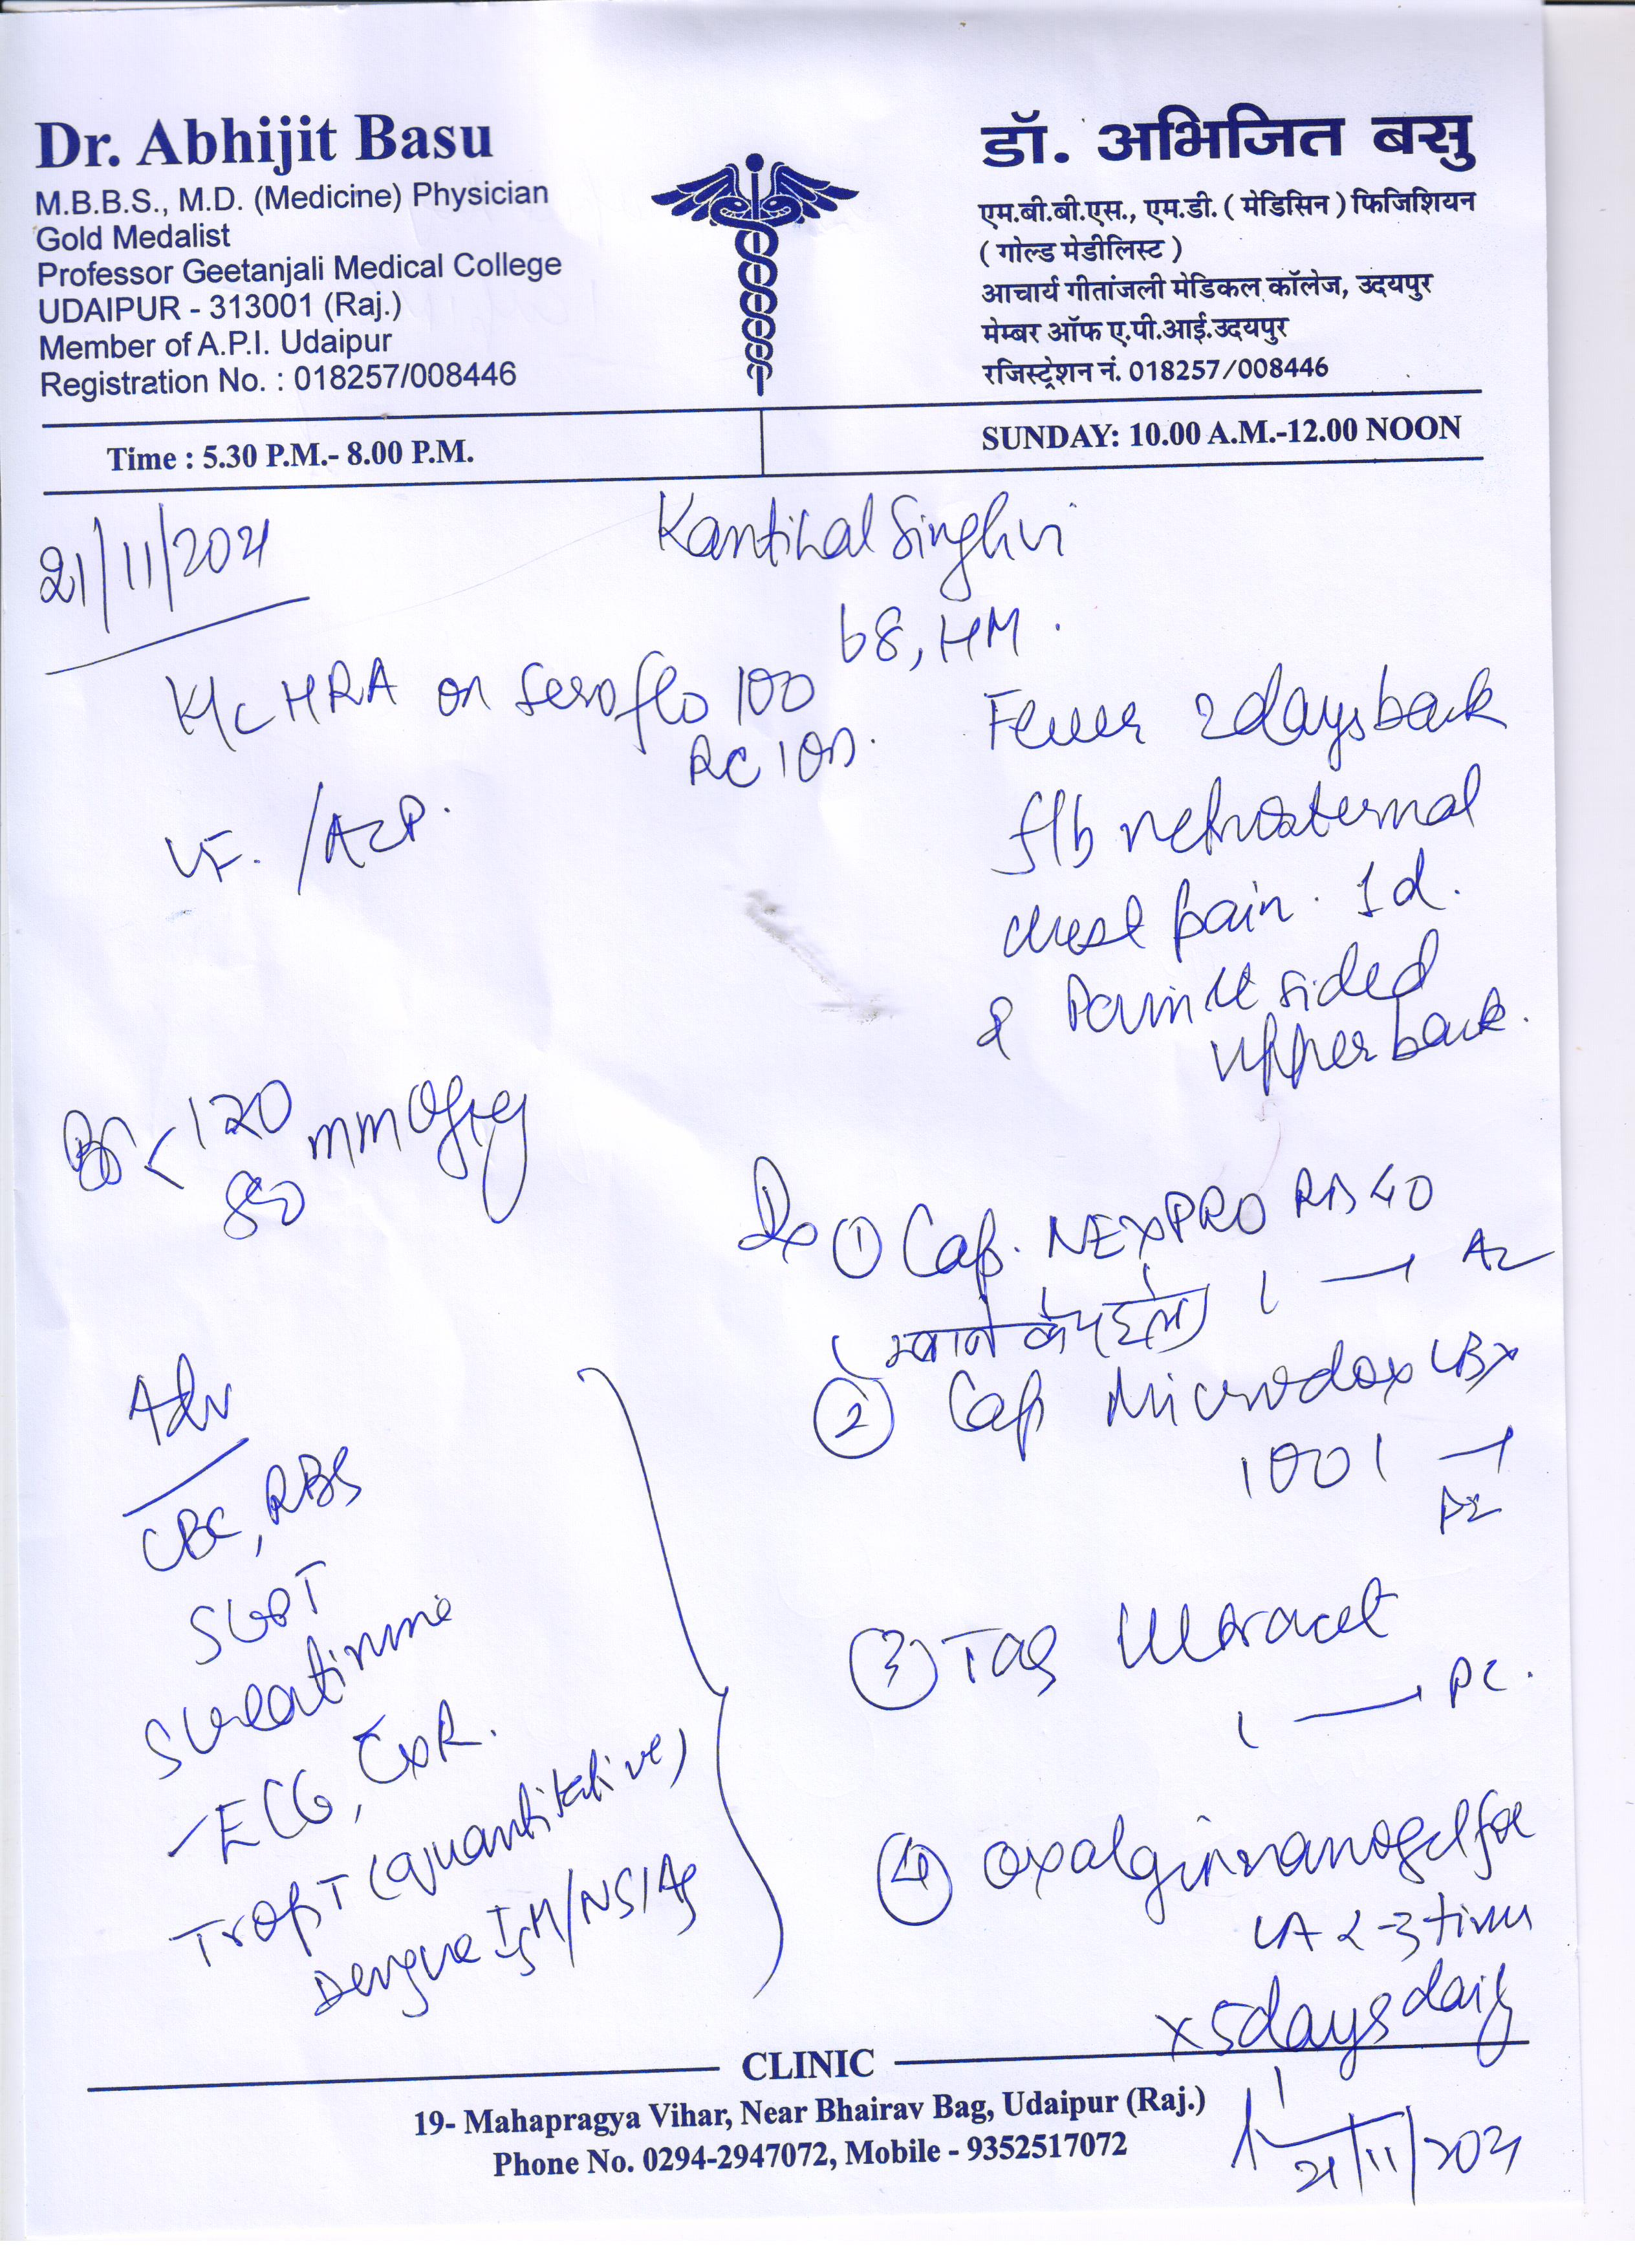 Dr. Abhijit Basu
M.B.B.S., M.D. (Medicine) Physician
Gold Medalist
Professor Geetanjali Medical College
UDAIPUR - 313001 (Raj.)
Member of A.P.I. Udaipur
Registration No. : 018257/008446
डॉ. अभिजित बसु
एम.बी.बी.एस., एम.डी. ( मेडिसिन ) फिजिशियन
( गोल्ड मेडीलिस्ट )
आचार्य गीतांजली मेडिकल कॉलेज, उदयपुर
मेम्बर ऑफ ए.पी.आई.उदयपुर
रजिस्ट्रेशन नं. 018257/008446
Time : 5.30 P.M.- 8.00 P.M.
SUNDAY: 10.00 A.M.-12.00 NOON
21/11/2021
Kantilal Singhvi
68, HM.
K/C HRA on Seroflo 100
RC 100.
Fever 2 days back
f/b retrosternal
chest pain. 1d.
& Pain lt sided
upper back.
120
80 mm of Hg
Adv
CBC, RBS
SGPT
S creatinine
- ECG, CXR.
Trop T (quantitative)
Dengue IgM/NS1Ag
Rx ① Cap. NEXPRO RD 40
1 →
खाने के पहले
② Cap Microdox LBX
1001 →
③ Tab Ultracet
1 → PC.
④ Oxalgin nanogel for
LA 2-3 times
daily
x 5days
21/11/2021
CLINIC
19- Mahapragya Vihar, Near Bhairav Bag, Udaipur (Raj.)
Phone No. 0294-2947072, Mobile - 9352517072